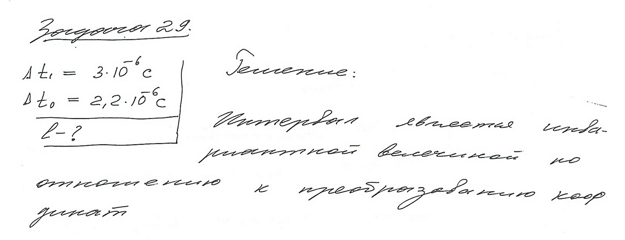 Задача 29.
Δt₁ = 3·10⁻⁶ с
Δt₀ = 2,2·10⁻⁶ с
l - ?
Решение:
Интервал является инва-
риантной величиной по
отношению к преобразованию коор
динат